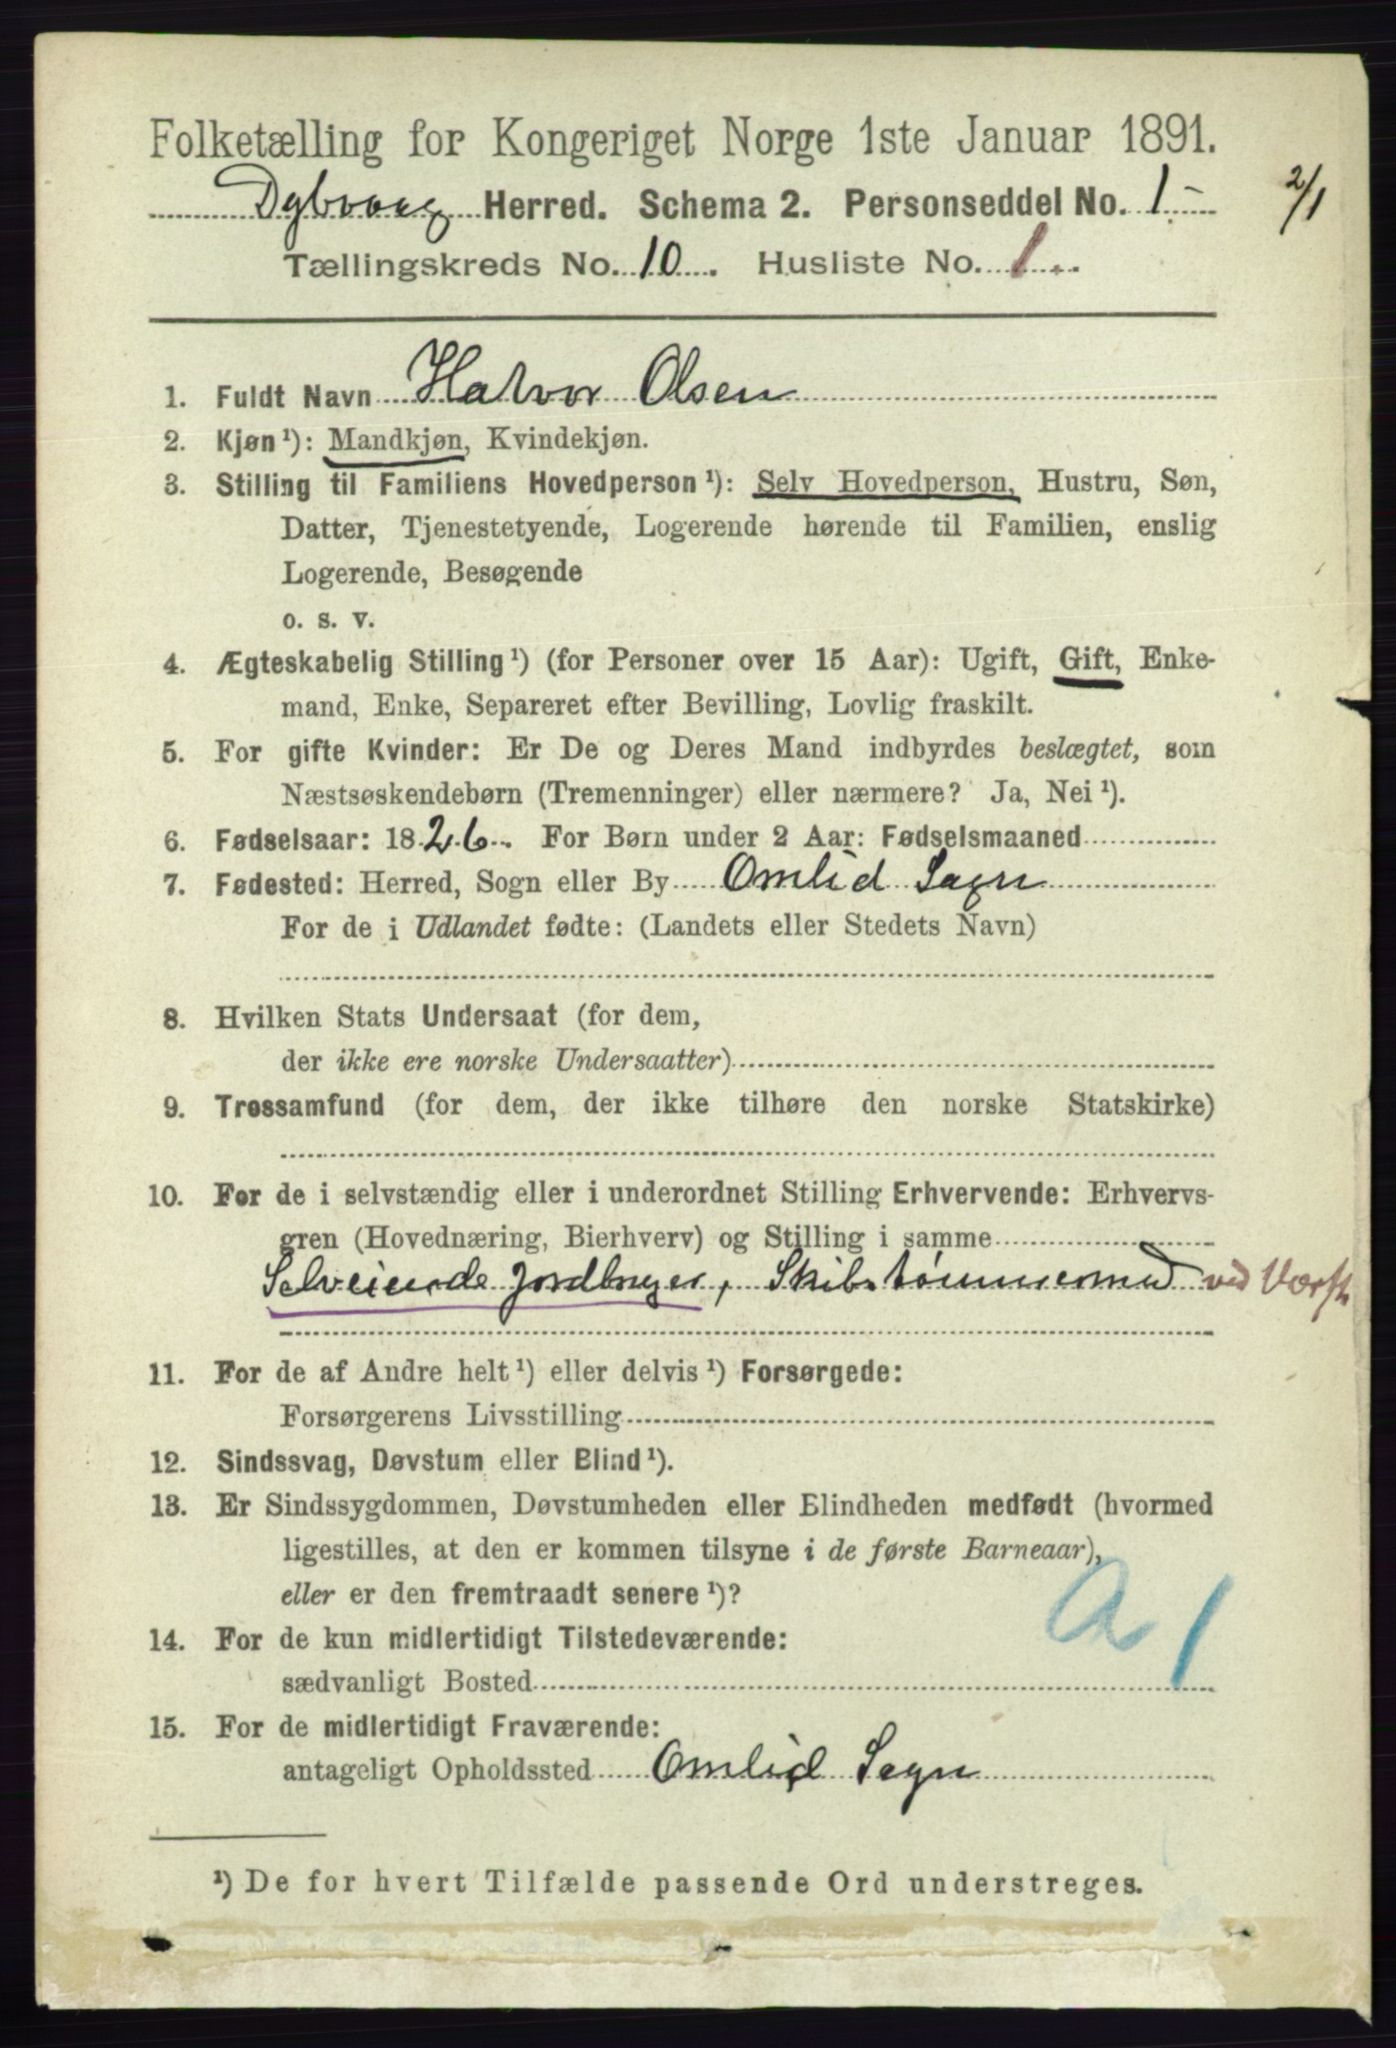 Folketælling for Kongeriget Norge 1ste Januar 1891.
Dybvaag Herred. Schema 2. Personseddel No. 1 -
2/1
Tællingskreds No. 10. Husliste No. 1.
1. Fuldt Navn Halvor Olsen
2. Kjøn ¹): Mandkjøn, Kvindekjøn.
3. Stilling til Familiens Hovedperson ¹): Selv Hovedperson, Hustru, Søn,
Datter, Tjenestetyende, Logerende hørende til Familien, enslig
Logerende, Besøgende
o. s. v.
4. Ægteskabelig Stilling ¹) (for Personer over 15 Aar): Ugift, Gift, Enke-
mand, Enke, Separeret efter Bevilling, Lovlig fraskilt.
5. For gifte Kvinder: Er De og Deres Mand indbyrdes beslægtet, som
Næstsøskendebørn (Tremenninger) eller nærmere? Ja, Nei ¹).
6. Fødselsaar: 1826. For Børn under 2 Aar: Fødselsmaaned
7. Fødested: Herred, Sogn eller By Omlid Sogn
For de i Udlandet fødte: (Landets eller Stedets Navn)
8. Hvilken Stats Undersaat (for dem,
der ikke ere norske Undersaatter)
9. Trossamfund (for dem, der ikke tilhøre den norske Statskirke)
10. For de i selvstændig eller i underordnet Stilling Erhvervende: Erhvervs-
gren (Hovednæring, Bierhverv) og Stilling i samme
Selveiende Jordbruger, Skibstømmermd ved Værft
11. For de af Andre helt ¹) eller delvis ¹) Forsørgede:
Forsørgerens Livsstilling
12. Sindssvag, Døvstum eller Blind ¹).
13. Er Sindssygdommen, Døvstumheden eller Blindheden medfødt (hvormed
ligestilles, at den er kommen tilsyne i de første Barneaar),
eller er den fremtraadt senere ¹)?
a 1
14. For de kun midlertidigt Tilstedeværende:
sædvanligt Bosted
15. For de midlertidigt Fraværende:
antageligt Opholdssted Omlid Sogn
¹) De for hvert Tilfælde passende Ord understreges.